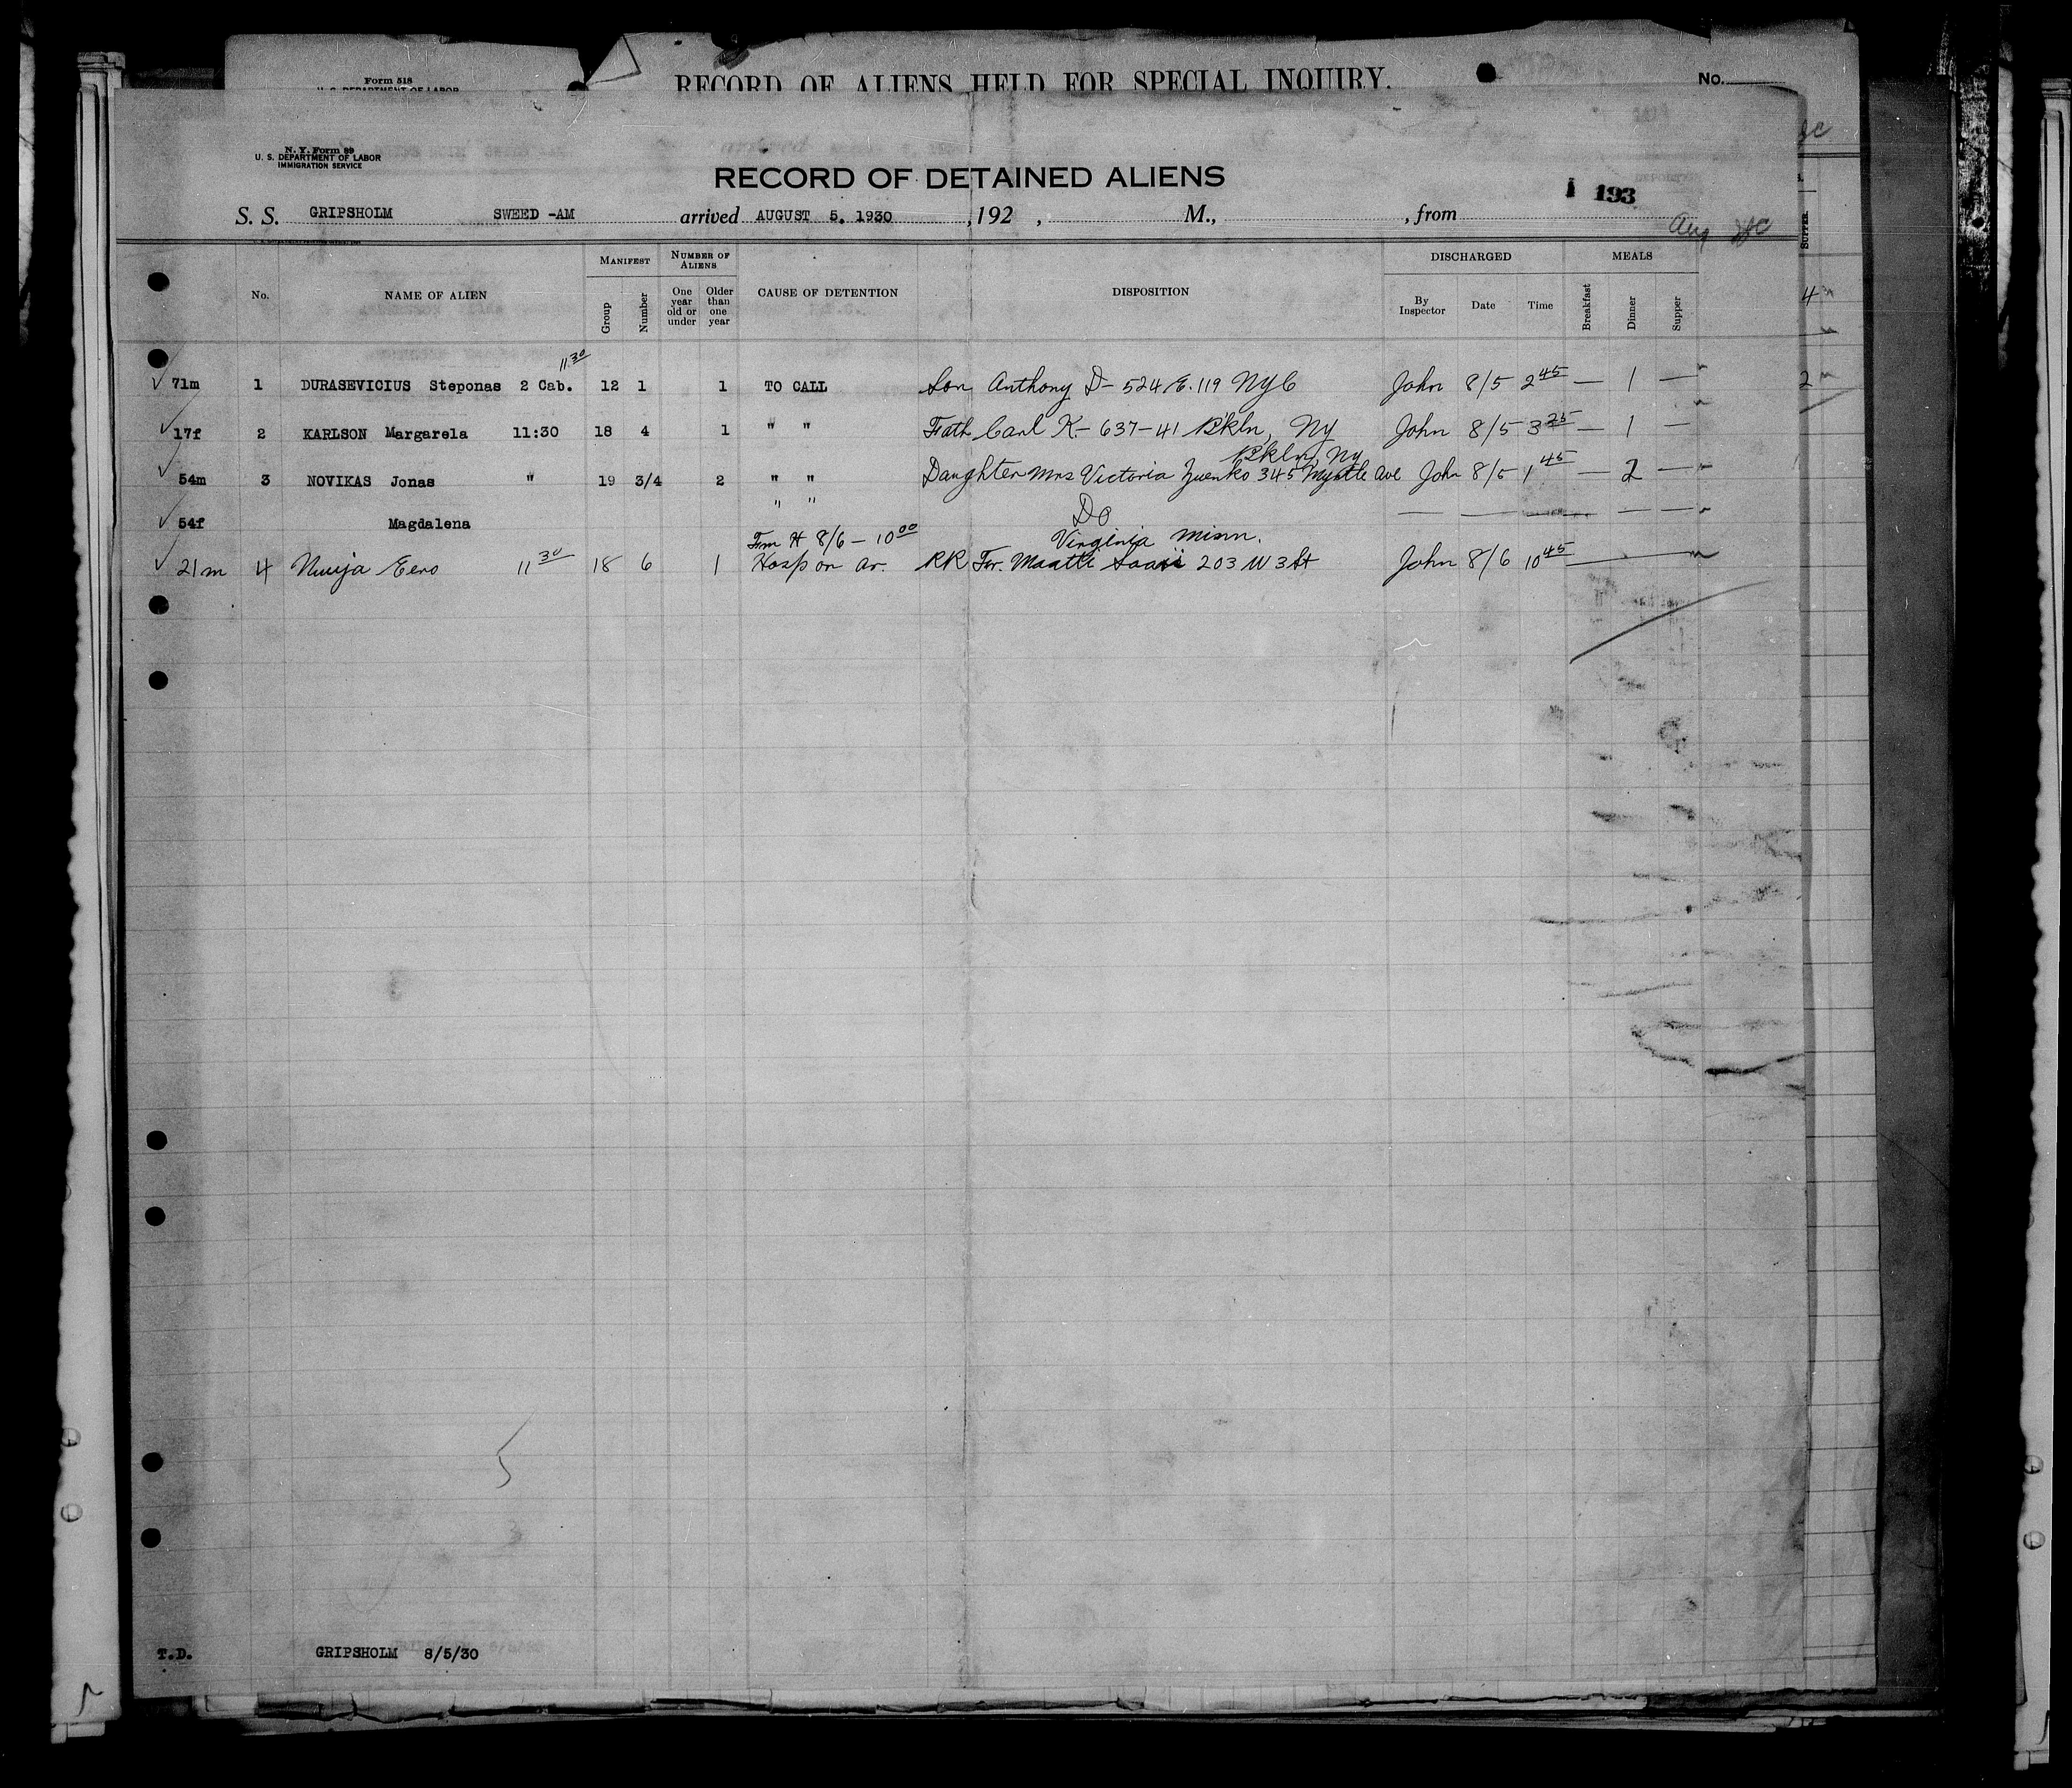 Form 518
U. S. DEPARTMENT OF LABOR
RECORD OF ALIENS HELD FOR SPECIAL INQUIRY.
No.
N. Y. Form 89
U. S. DEPARTMENT OF LABOR
IMMIGRATION SERVICE
RECORD OF DETAINED ALIENS
1 193
S. S. GRIPSHOLM SWEED -AM arrived AUGUST 5, 1930 , 192 , M., , from
Aug
No. NAME OF ALIEN MANIFEST Group Number NUMBER OF ALIENS One year old or under Older than one year CAUSE OF DETENTION DISPOSITION DISCHARGED By Inspector Date Time MEALS Breakfast Dinner Supper
SUPPER
11 30
71m 1 DURASEVICIUS Steponas 2 Cab. 12 1 1 TO CALL Son Anthony D- 524 E. 119 NYC John 8/5 2 45 — 1 —
17f 2 KARLSON Margarela 11:30 18 4 1 " " Fath Carl K- 637-41 Bkln, Ny John 8/5 3 25 — 1 —
Bkln, Ny
54m 3 NOVIKAS Jonas " 19 3/4 2 " " Daughter Mrs Victoria Zuenko 345 Myrtle Ave John 8/5 1 45 — 2 —
54f Magdalena " " Do — — — — —
Fm H 8/6 - 10 00 Virginia Minn.
21m 4 Nuuja Eero 11 30 18 6 1 Hosp on ar. RR 203 W 3 St John 8/6 10 45
5
T.D. GRIPSHOLM 8/5/30